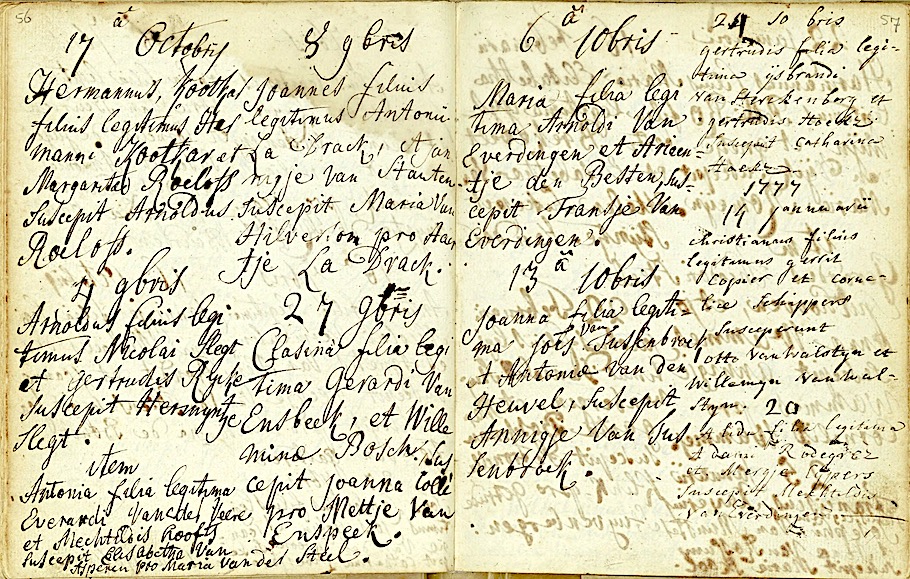 56
17 Octobris
Hermannus, Koothaf
filius legitimus Her
manni Koothaf et
Margarita Roeloff
Suscepit Arnoldus
Roeloff.
4 9bris
Arnoldus filius legi
timus Nicolai Slegt
et Gertrudis Rijcke
Suscepit Hermyntje
Slegt.
item
Antonia filia legitima
Everardi Van der Veere
et Mechtildis Hoofts
Suscepit Elisabetha Van
Asperen pro Maria Van der Steel.
8 9bris
Joannes filius
legitimus Antonii
La Drack, et Jan
nigje van Stauten
Suscepit Maria Van
Hilversom pro Aan
tje La Drack.
27 9bris
Clasina filia legi
tima Gerardi Van
Ensbeek, et Wille
minæ Bosch, Sus
cepit Joanna Colle
pro Mettje Van
Enspeek.
6 10bris
Maria filia legi
tima Arnoldi Van
Everdingen et Arien-
tje den Besten, Sus-
cepit Fransje Van
Everdingen.
13 10bris
Joanna filia legiti-
ma Jois van Sussenbroek
et Antoniæ Van den
Heuvel, Suscepit
Annigje Van Sus
senbroek.
57
24 10 bris
gertrudis filia legi-
tima ijsbrandi
Van Sterkenborg et
gertrudis
Suscepit Catharina
1777
14 Jannuarii
Christianus filius
legitimus gerrit
Copier et Corne-
liæ Schippers
Susceperunt
otto Van Walstyn et
Willemyn Van Wal-
styn.
20
filia legitima
Adami Rodegiez
et Mergje Cuypers
Suscepit Mechtildis
Van Everdingen